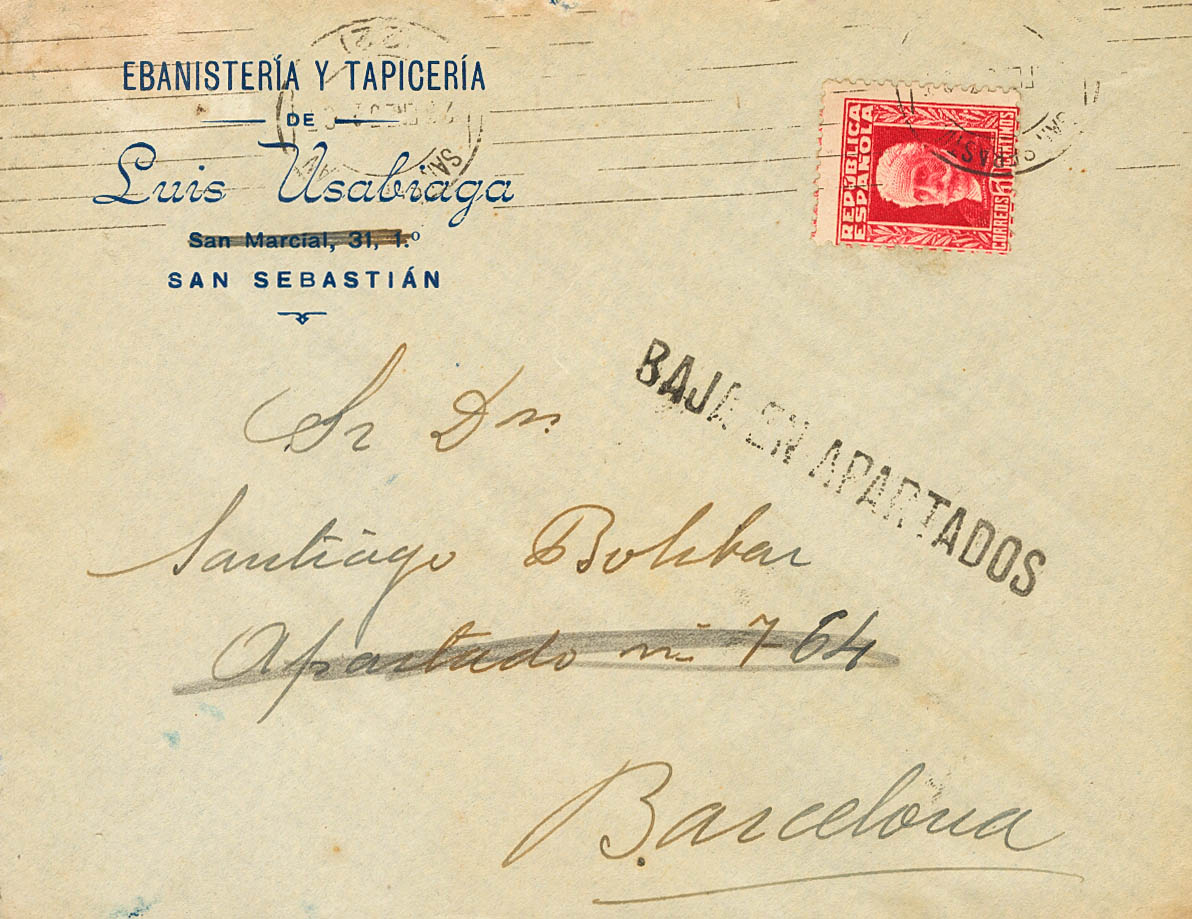 EBANISTERÍA Y TAPICERÍA
DE
Luis Usabiaga
San Marcial, 31, 1.º
SAN SEBASTIÁN
REPÚBLICA
ESPAÑOLA
CORREOS
BAJA EN APARTADOS
Sr Dn.
Santiago
Apartado nú 764
Barcelona